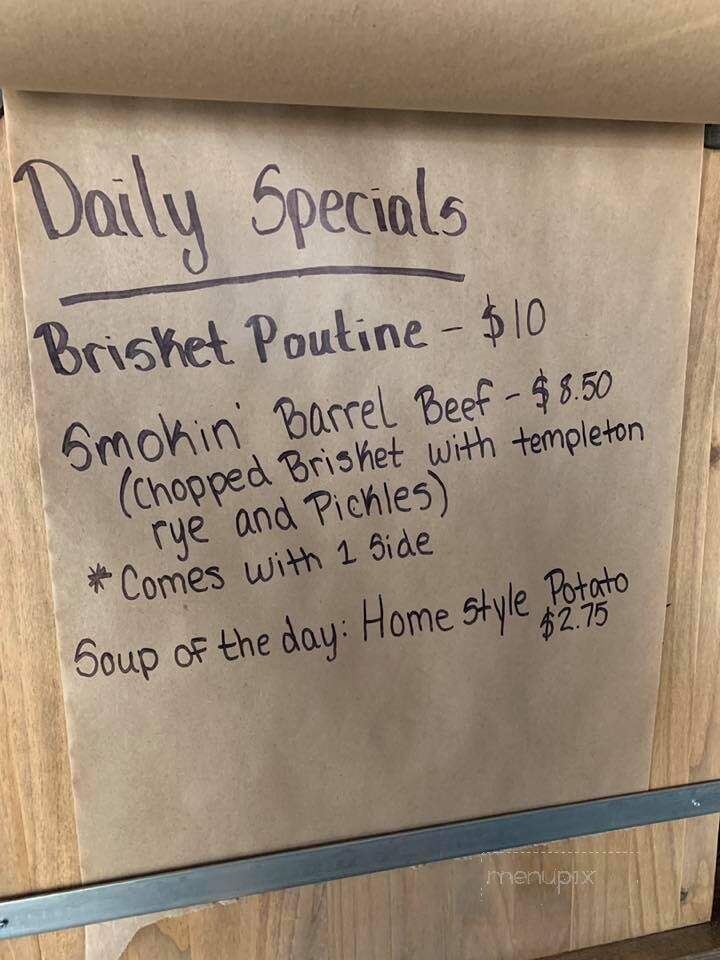 Daily Specials
Brisket Poutine - $10
Smokin' Barrel Beef - $8.50
(Chopped Brisket with templeton
rye and Pickles)
* Comes with 1 Side
Soup of the day: Home style Potato
$2.75
menupix